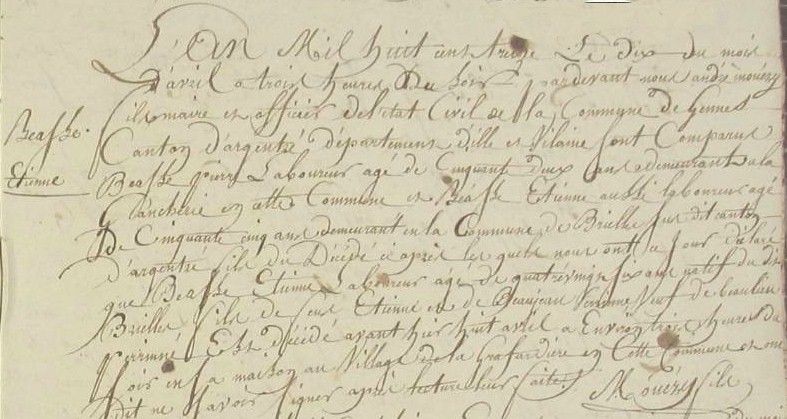 L'an Mil huit cens treize Le dix du mois
d'avril a trois heures du soir pardevant nous andré mouézy
fils maire et officier de l'état Civil de la Commune de Gennes
Canton d'argentré département d'ille et Vilaine sont Comparus
Beasse pierre Laboureur agé de Cinquante deux ans demeurant a la
Plancherie en cette Commune et Beasse Etienne aussi laboureur agé
De Cinquante cinq ans demeurant en la Commune de Brielles sus dit canton
d'argentré fils du Décédé ci après les quels nous ont ce jour déclaré
que Beasse Etienne Laboureur agé de quatrevingt six ans natif du dit
Brielles fils de feus Etienne et de Beaujean veuf de beaulieu
perrinne Est décédé avant hier huit avril a Environ trois heures du
soir en sa maison au Village de la en Cette Commune et ont
dit ne savoir signer après lecture leur faite
Mouézy fils
Beasse
Etienne